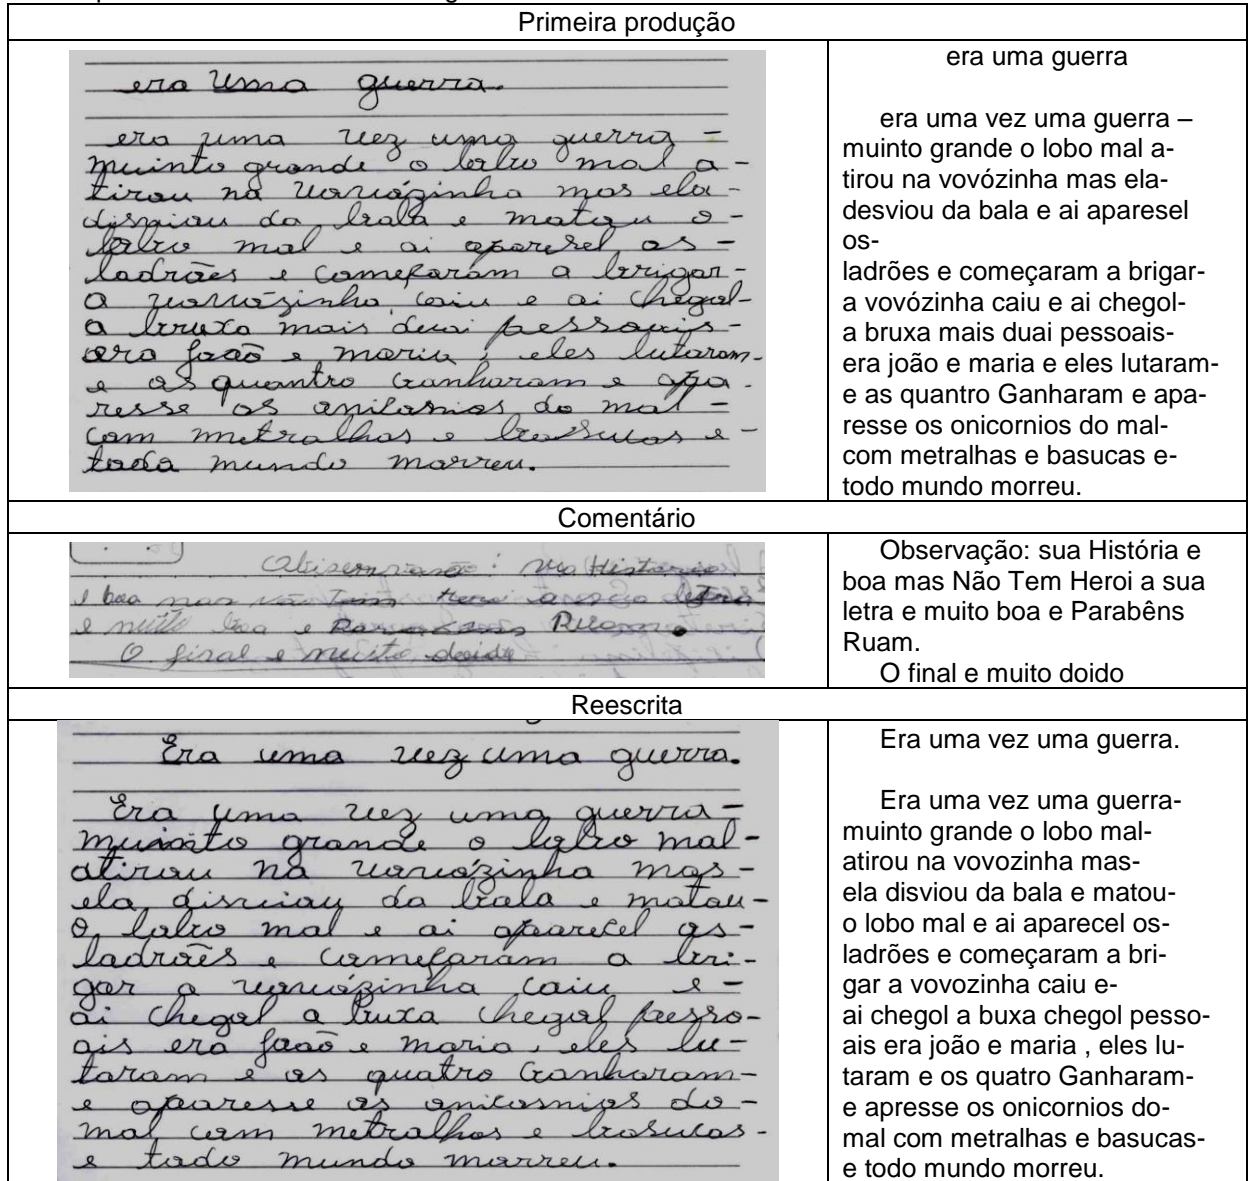 Primeira produção
era uma guerra.
era uma vez uma guerra -
muinto grande o lobo mal a-
tirou na vovózinha mas ela-
disviou da bala e matou o-
lobo mal e ai aparesel os-
ladrões e começaram a brigar-
a vovózinha caiu e ai chegol-
a bruxa mais duai pessoais-
era joão e maria, eles lutaram-
e as quantro Ganharam e apa-
resse os onicornios do mal-
com metralhas e basucas e-
todo mundo morreu.
era uma guerra
era uma vez uma guerra –
muinto grande o lobo mal a-
tirou na vovózinha mas ela-
desviou da bala e ai aparesel
os-
ladrões e começaram a brigar-
a vovózinha caiu e ai chegol-
a bruxa mais duai pessoais-
era joão e maria e eles lutaram-
e as quantro Ganharam e apa-
resse os onicornios do mal-
com metralhas e basucas e-
todo mundo morreu.
Comentário
Historia
e boa mas não Tem Heroi a sua letra
e muito boa e
O final e muito doido
Observação: sua História e
boa mas Não Tem Heroi a sua
letra e muito boa e Parabêns
Ruam.
O final e muito doido
Reescrita
Era uma vez uma guerra.
Era uma vez uma guerra-
muinto grande o lobo mal-
atirou na vovózinha mas-
ela disviou da bala e matou-
o lobo mal e ai aparecel os-
ladrões e começaram a bri-
gar a vovózinha caiu e-
ai chegol a buxa chegol pesso-
ais era joão e maria, eles lu-
taram e os quatro Ganharam-
e aparesse os onicornios do-
mal com metralhas e basucas-
e todo mundo morreu.
Era uma vez uma guerra.
Era uma vez uma guerra-
muinto grande o lobo mal-
atirou na vovozinha mas-
ela disviou da bala e matou-
o lobo mal e ai aparecel os-
ladrões e começaram a bri-
gar a vovozinha caiu e-
ai chegol a buxa chegol pesso-
ais era joão e maria , eles lu-
taram e os quatro Ganharam-
e apresse os onicornios do-
mal com metralhas e basucas-
e todo mundo morreu.